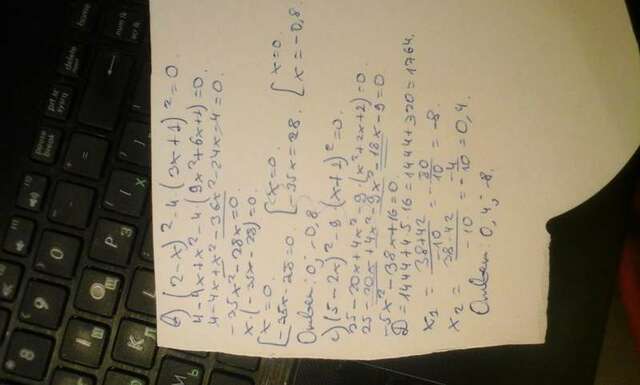 б) (2-x)² - 4(3x+1)² = 0.
4-4x+x²-4(9x²+6x+1)=0.
4-4x+x²-36x²-24x-4=0.
-35x²-28x=0.
x(-35x-28)=0.
[x=0.
[-35x-28=0. [x=0. -35x=28. [x=0. x=-0,8.
Ответ: 0; -0,8.
с) (5-2x)²-9(x+1)²=0.
25-20x+4x²-9·(x²+2x+1)=0.
25-20x+4x²-9x²-18x-9=0
-5x²-38x+16=0.
D=1444+4·5·16=1444+320=1764.
x₁ = 38+42/-10 = -80/10 = -8.
x₂ = 38-42/-10 = -4/-10 = 0,4.
Ответ: 0,4; -8.
home
delete
prt sc
sysrq